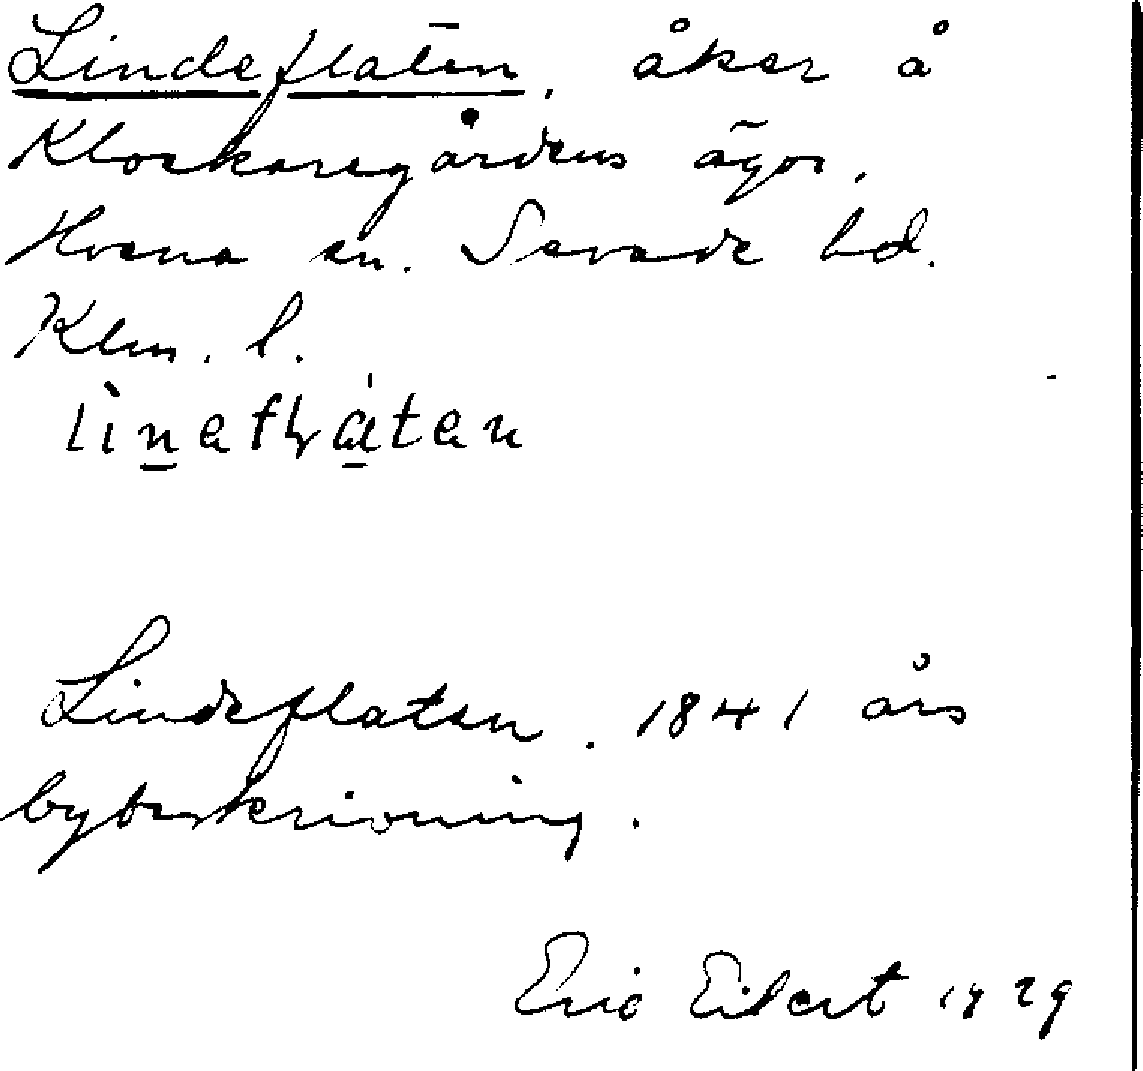 Lindeflaten, åker å
Klockaregårdens ägor,
Hvena sn. Sevede hd.
Klm. l.
Lindeflaten. 1841 års
bybeskrivning.
Eric Eilert 1929